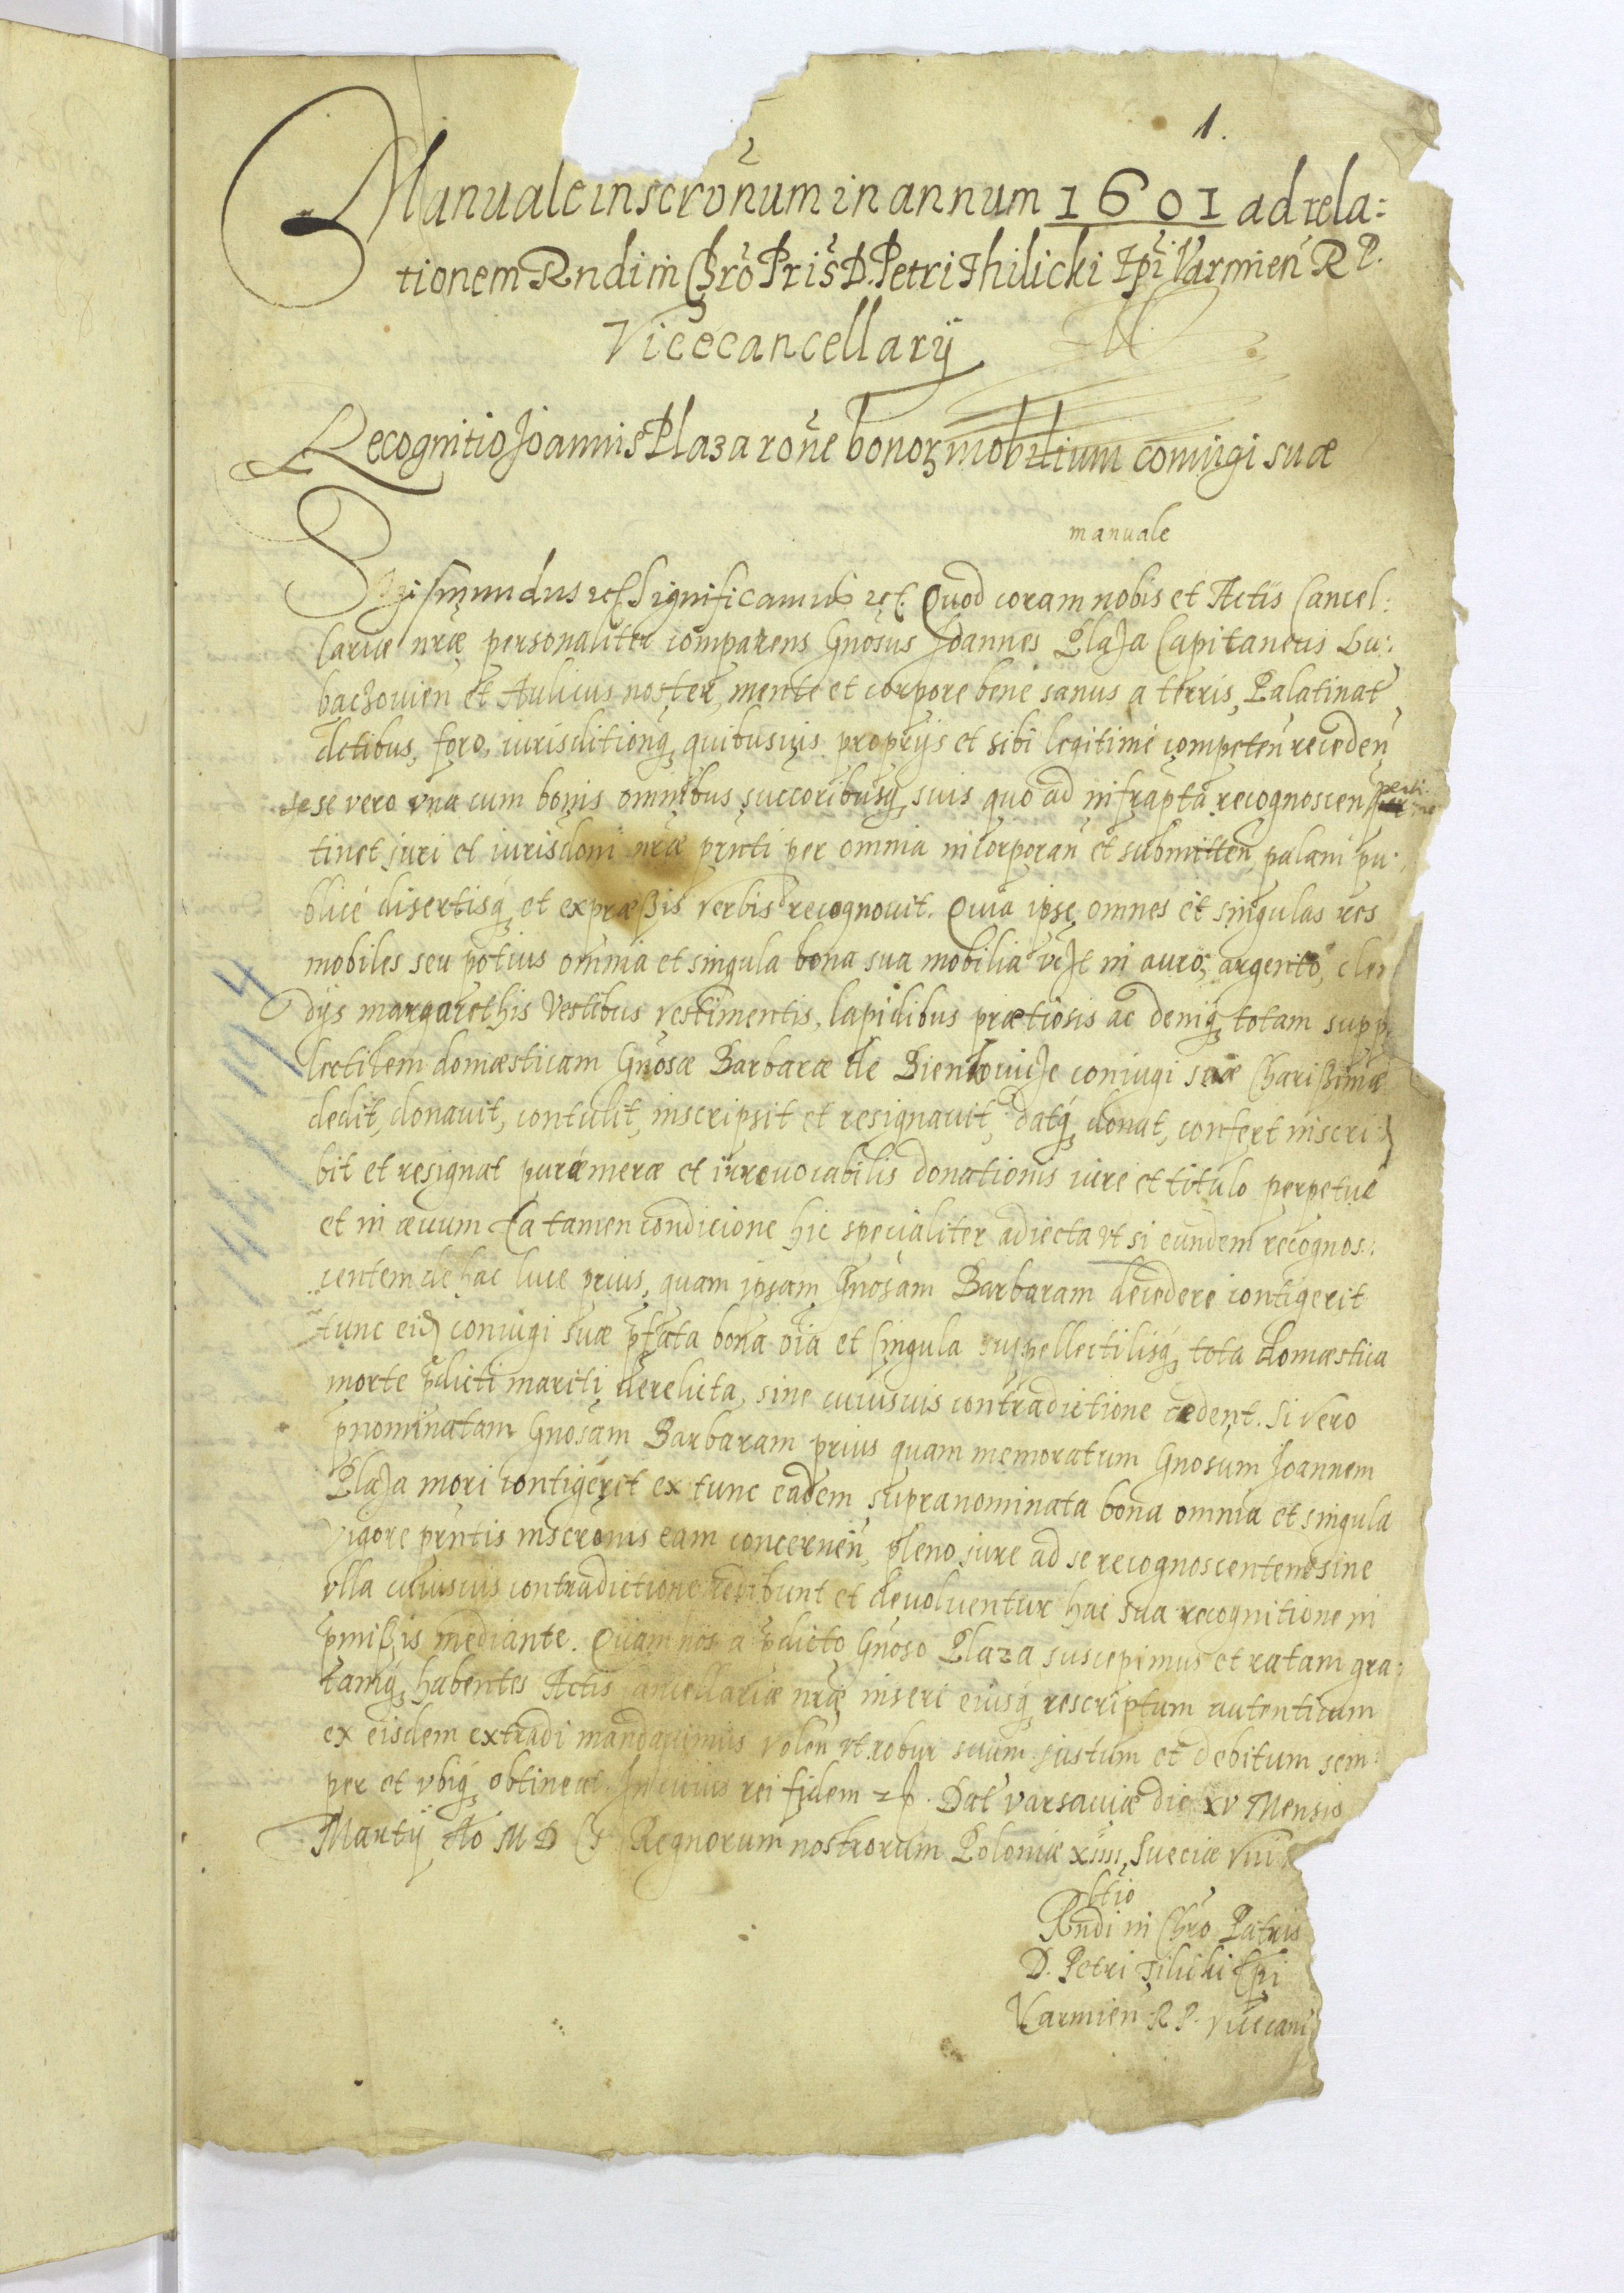 1.
Manuale inscrōnum in annum 1601 ad rela:
tionem Rndi in Chro Pris D. Petri Thilicki Epi Varmien R P.
Vicecancellarij
Recognitio Joannis Plaza rone bonor mobilium coniugi suæ
manuale
Sigismundus etc Significamus etc. Quod coram nobis et Actis Cancel:
lariæ nræ personaliter comparens Gnosus Joannes Plaza Capitaneus Lu:
baczouien et Aulicus noster, mente et corpore bene sanus a terris, Palatinat
dctibus, foro, iurisditionq quibusuis proprijs et sibi legitime competen receden
se se vero vna cum bonis omnibus succoribusq suis quo ad infrapta recognoscen perti:
tinet juri et iurisdoni nræ prnti per omnia incorporan et submitten palam pu:
blice disertisq et expræssis verbis recognouit. Quia ipse omnes et singulas res
mobiles seu potius omnia et singula bona sua mobilia vczt in auro, argento, clen
dijs margarethis Vestibus vestimentis, lapidibus prætiosis ac deniq totam suppe
lectilem domæsticam Gnosæ Barbaræ de coniugi suæ Charissimæ
dedit, donauit, contulit, inscripsit et resignauit, datq donat, confert inscri:
bit et resignat puræ meræ et irreuocabilis donationis iure et titulo perpetue
et in æuum Ea tamen condicione hic specialiter adiecta vt si eundem recognos:
centem de hac luce prius, quam ipsam Gnosam Barbaram decedere contigerit
tunc eid coniugi suæ pfata bona oia et singula suppellectilisq tota domæstica
morte pdicti mariti derelicta, sine cuiusuis contradictione cedent. Si vero
pnominatam Gnosam Barbaram prius quam memoratum Gnosum Joannem
Plaza mori contigerit ex tunc eadem supranominata bona omnia et singula
vigore prntis inscronis eam concernen, pleno jure ad se recognoscentem sine
vlla cuiusuis contradictione redibunt et deuoluentur hac sua recognitione in
pmissis mediante. Quam nos a pdicto Gnoso Plaza suscepimus et ratam gra:
tamq habentes Actis Cancellariæ nræ inseri eiusq rescriptum autenticum
ex eisdem extradi mandauimus volen vt robur suum justum et debitum sem:
per et vbiq obtineat. In cuius rei fidem etc. Dat varsauiæ die xv Mensis
Martij Ao M D CI Regnorum nostrorum Poloniæ xiiii, Sueciæ viii
Rltio
Rndi in Chro Patris
D. Petri Tilicki Epi
Varmien R P. Vicecanc